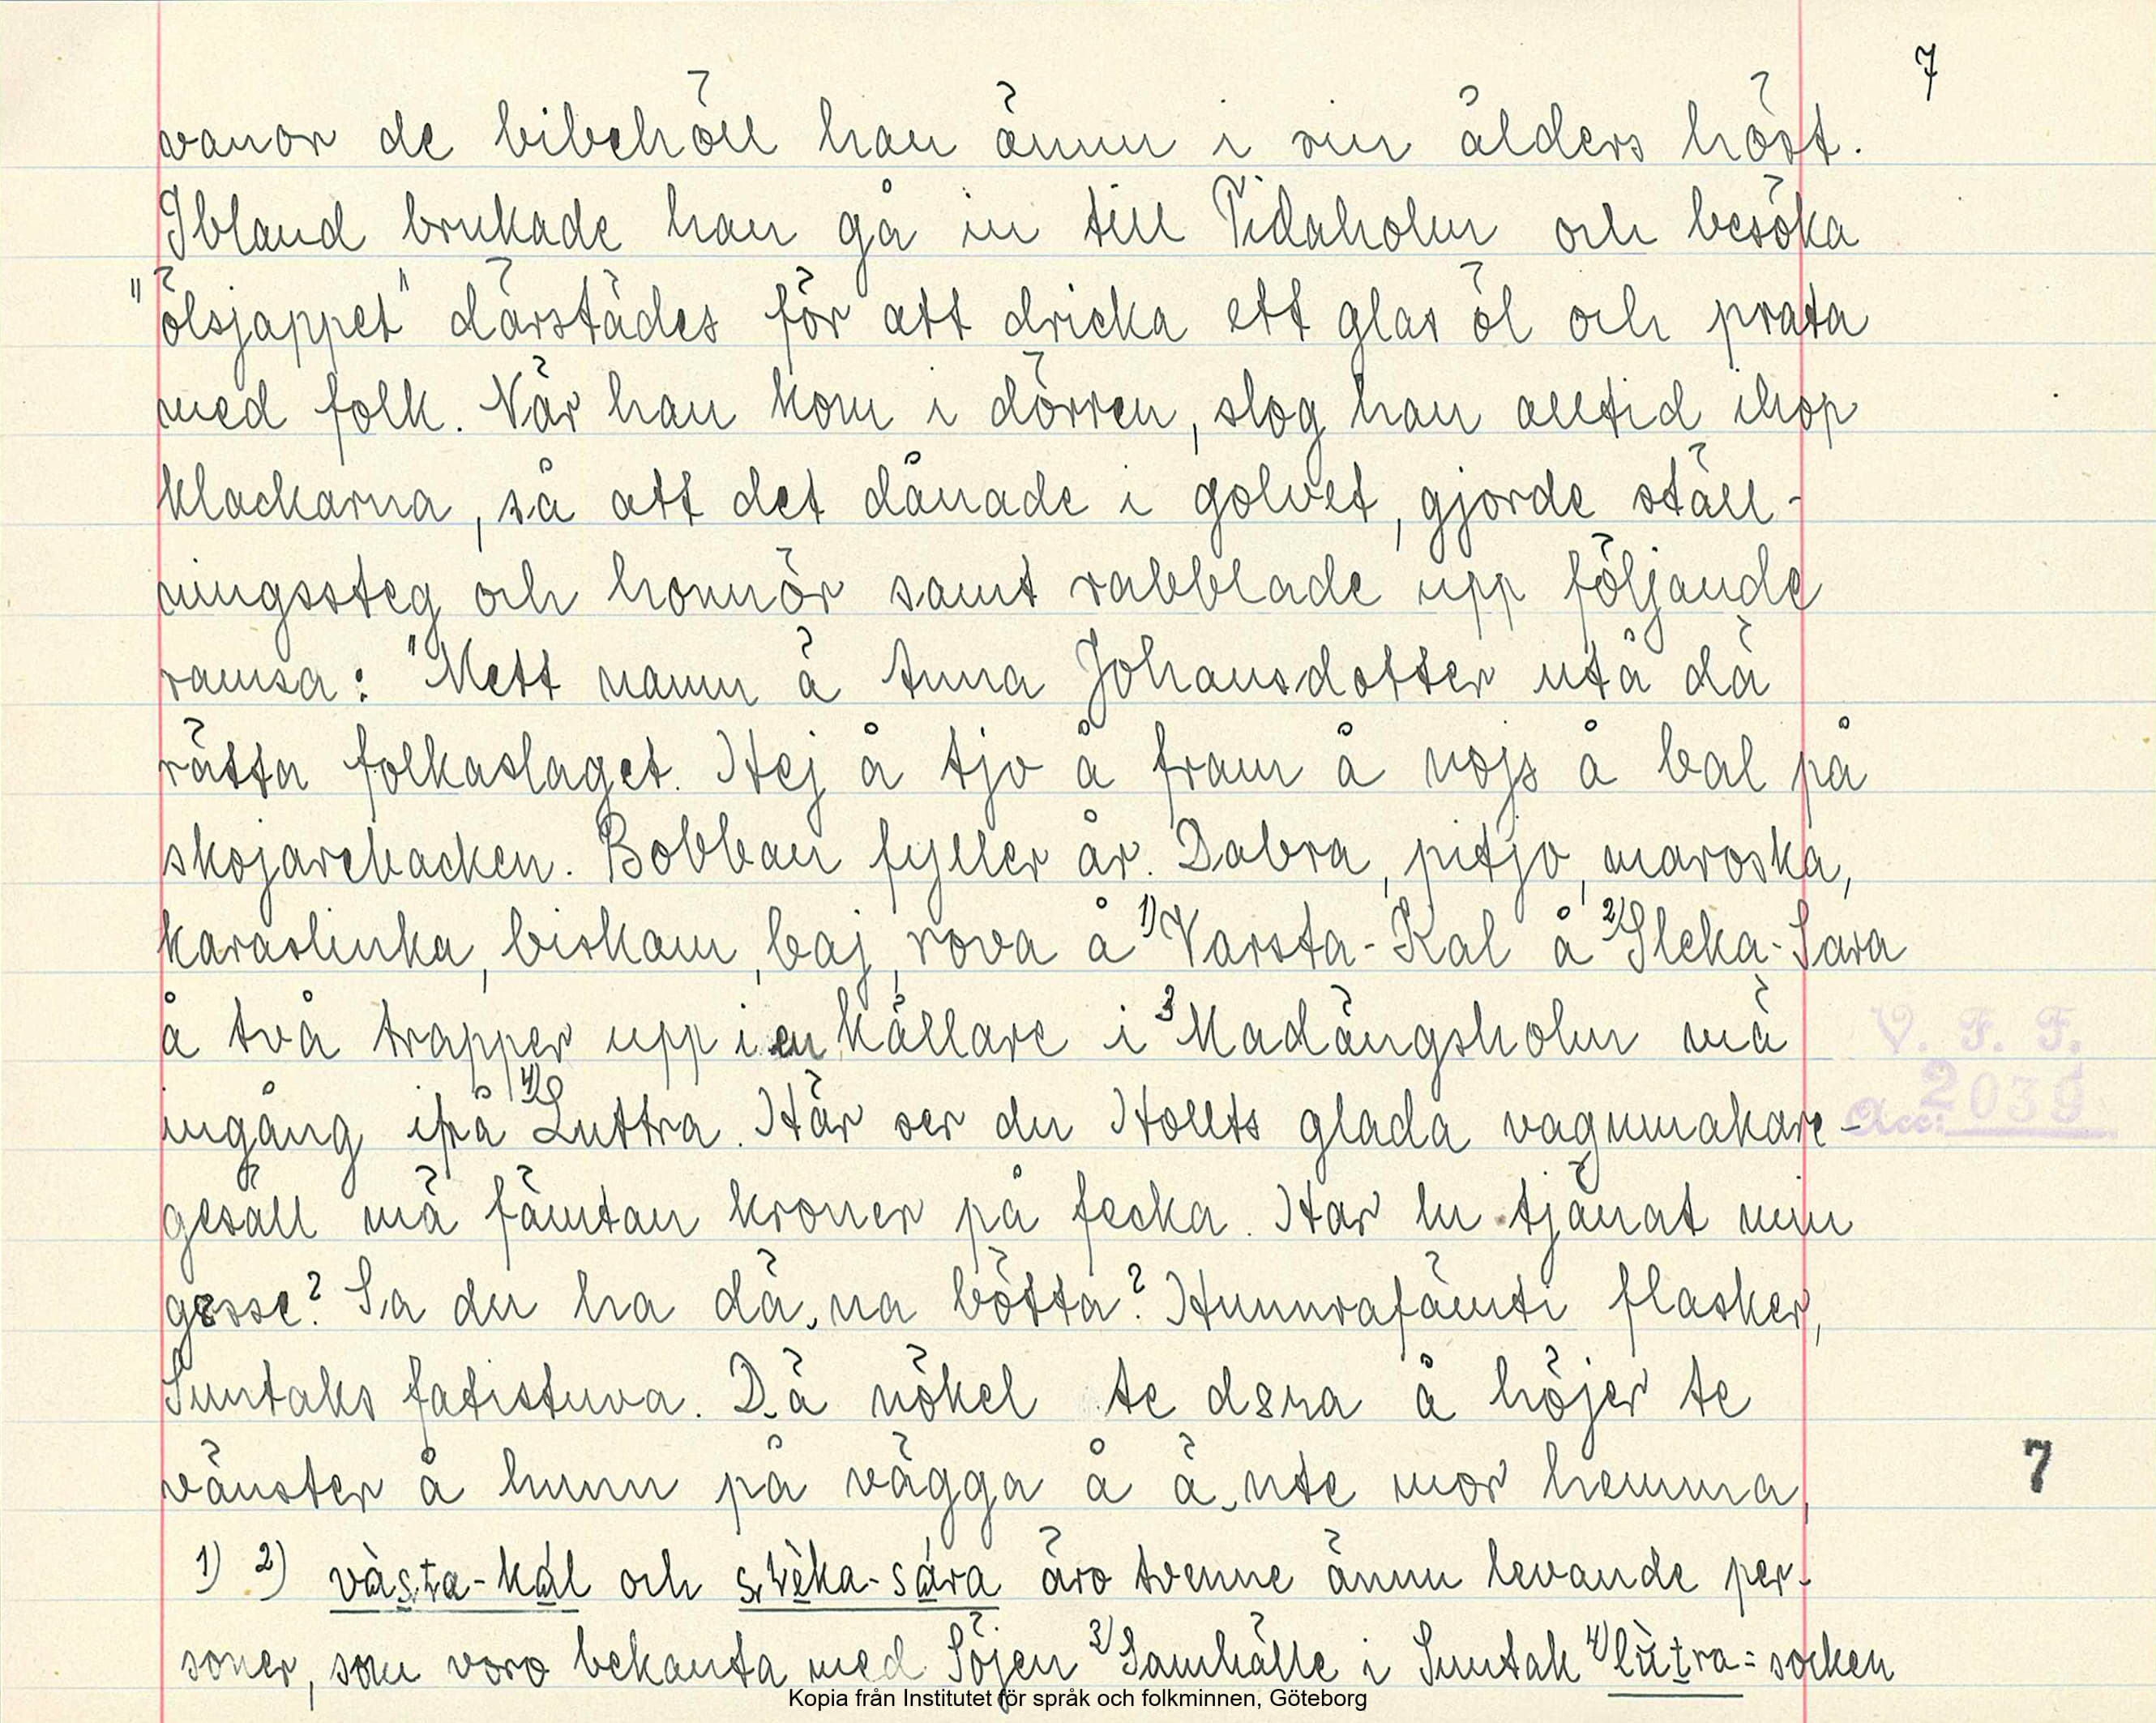 7
vanor de bibehöll han ännu i sin ålders höst.
Ibland brukade han gå in till Tidaholm och besöka
"ölsjappet" därstädes för att dricka ett glas öl och prata
med folk. När han kom i dörren, slog han alltid ihop
klackarna, så att det dånade i golvet, gjorde ställ-
ningssteg och honnör samt rabblade upp följande
ramsa: "Mett namn ä Anna Johansdotter utå dä
rätta folkaslaget. Hej å tjo å fram å nojs å bal på
skojarebacken. Bobban fyller år. Dabra, pitjo, maroska,
karaslinka, biskam, baj, rova å 1) Varsta-Kal å 2) Sleka-Sara
å två trapper upp i en källare i 3 Madängsholm mä
ingång ifrå 4) Luttra. Här ser du Holits glada vagnmakare-
gesäll mä fämtan kroner på fecka. Har hu tjänat min
gosse? Sa du ha dä, na bötta? Hunnrafämti flasker,
Suntaks fatistuva. D.ä nökel te døra å höjer te
vänster å hunn på vägga å ä nte mor hemma,
1) 2) vàsta-kál och slèka-sára äro tvenne ännu levande per-
soner, som voro bekanta med Söjen 3) Samhälle i Suntak 4) lùtra = socken
V. F. F.
Acc: 2039
7
Kopia från Institutet för språk och folkminnen, Göteborg